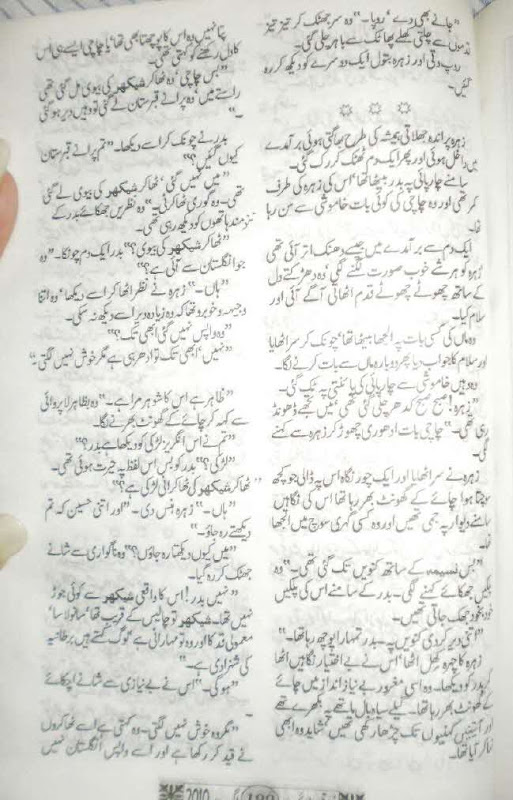 ”جانے بھی دے ’روپا۔“ وہ سر جھٹک کر تیز تیز
قدموں سے چلتی کھلے پھاٹک سے باہر چلی گئی۔
روپ وتی اور زہرہ بتول ایک دوسرے کو دیکھ کر رہ
گئیں۔
زہرہ پراندہ جھلاتی ہمیشہ کی طرح بھاگتی ہوئی برآمدے
میں داخل ہوئی اور پھر ایک دم ٹھٹک کر رک گئی۔
سامنے چارپائی پہ بدر بیٹھا تھا‘ اس کی زہرہ کی طرف
کمر تھی اور وہ چاچی کی کوئی بات خاموشی سے سن رہا
تھا۔
ایک دم سے برآمدے میں جیسے دھنک اتر آئی تھی
زہرہ کو ہر شے خوب صورت لگنے لگی‘ وہ دھڑکتے دل
کے ساتھ چھوٹے چھوٹے قدم اٹھاتی آگے آئی اور
سلام کیا۔
وہ ماں کی کسی بات پہ الجھا بیٹھا تھا‘ چونک کر سر اٹھایا
اور سلام کا جواب دیا پھر دوبارہ ماں سے بات کرنے لگا۔
وہ وہیں خاموشی سے چارپائی کی پائنتی پہ ٹک گئی۔
”زہرہ! صبح صبح کدھر چلی گئی تھی‘ میں تجھے ڈھونڈ
رہی تھی۔“ چاچی بات ادھوری چھوڑ کر زہرہ سے کہنے
لگی۔
زہرہ نے سر اٹھایا اور ایک چور نگاہ اس پہ ڈالی جو کچھ
سوچتا ہوا چائے کے گھونٹ بھر رہا تھا اس کی نگاہیں
سامنے دیوار پہ جمی تھیں اور وہ کسی گہری سوچ میں الجھا
تھا۔
”بس نسیمہ کے ساتھ کنویں تک گئی تھی۔“ وہ
پلکیں جھکائے کہنے لگی۔ بدر کے سامنے اس کی پلکیں
خود بخود جھک جاتی تھیں۔
”اتنی دیر کر دی کنویں پہ۔ بدر تمہارا پوچھ رہا تھا۔“
زہرہ کا چہرہ کھل اٹھا‘ اس نے بے اختیار نگاہیں اٹھا
کر بدر کو دیکھا۔ وہ اسی مغرور بے نیاز انداز میں چائے
کے گھونٹ بھر رہا تھا۔ گیلے سیاہ بال ماتھے پہ بکھرے تھے
اور آستینیں کہنیوں تک چڑھا رکھی تھیں‘ شاید وہ ابھی
نہا کر آیا تھا۔
پتا نہیں وہ اس کا پوچھتا بھی تھا یا چاچی ایسے ہی اس
کا دل رکھنے کو کہتی تھی۔
”بس چاچی‘ وہ ٹھاکر شیکھر کی بیوی مل گئی تھی
راستے میں‘ وہ پرانے قبرستان لے گئی تو وہیں دیر ہو گئی
۔“
بدر نے چونک کر اسے دیکھا۔ ”تم پرانے قبرستان
کیوں گئیں؟“
”میں نہیں گئی‘ ٹھاکر شیکھر کی بیوی لے گئی
تھی۔ وہ گوری ٹھاکرائنی۔“ وہ نظریں جھکائے بدر کے
تنومند ہاتھوں کو دیکھ رہی تھی۔
”ٹھاکر شیکھر کی بیوی؟“ بدر ایک دم چونکا۔ ”وہ
جو انگلستان سے آئی ہے؟“
”ہاں۔“ زہرہ نے نظر اٹھا کر اسے دیکھا‘ وہ اتنا
وجیہہ و خوبرو تھا کہ وہ زیادہ دیر اسے دیکھ نہ سکی۔
”وہ واپس نہیں گئی ابھی تک؟“
”نہیں‘ ابھی تک تو ادھر ہی ہے مگر خوش نہیں لگتی۔“
”ظاہر ہے اس کا شوہر مرا ہے۔“ وہ بظاہر لاپروائی
سے کہہ کر چائے کے گھونٹ بھرنے لگا۔
”تم نے اس انگریز لڑکی کو دیکھا ہے بدر؟“
”لڑکی؟“ بدر کو بس اس لفظ پہ حیرت ہوئی تھی۔
”ٹھاکر شیکھر کی ٹھاکرائنی لڑکی ہے؟“
”ہاں۔“ زہرہ ہنس دی۔ ”اور اتنی حسین کہ تم
دیکھتے رہ جاؤ۔“
”میں کیوں دیکھتا رہ جاؤں؟“ وہ ناگواری سے شانے
جھٹک کر رہ گیا۔
”نہیں بدر! اس کا واقعی شیکھر سے کوئی جوڑ
نہیں تھا۔ شیکھر تو چالیس کے قریب تھا‘ سانولا سا‘
معمولی قد کا اور وہ تو مہارانی ہے‘ لوگ کہتے ہیں برطانیہ
کی شہزادی ہے۔“
”ہو گی۔“ اس نے بے نیازی سے شانے اچکائے
۔
”مگر وہ خوش نہیں لگتی۔ وہ کہتی ہے اسے ٹھاکروں
نے قید کر رکھا ہے اور اسے واپس انگلستان نہیں
2010